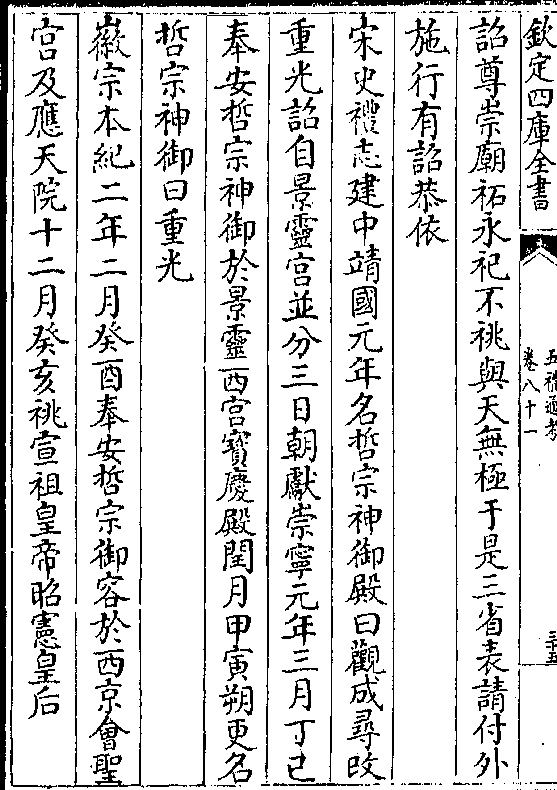 欽定四庫全書
五禮通考
卷八十一
三十五
詔尊崇廟祏永祀不祧與天無極于是三省表請付外
施行有詔恭依
宋史禮志建中靖國元年名哲宗神御殿曰觀成尋改
重光詔自景靈宮並分三日朝獻崇寧元年三月丁巳
奉安哲宗神御於景靈西宮寳慶殿閏月甲寅朔更名
哲宗神御曰重光
徽宗本紀二年二月癸酉奉安哲宗御容於西京會聖
宮及應天院十二月癸亥祧宣祖皇帝昭憲皇后